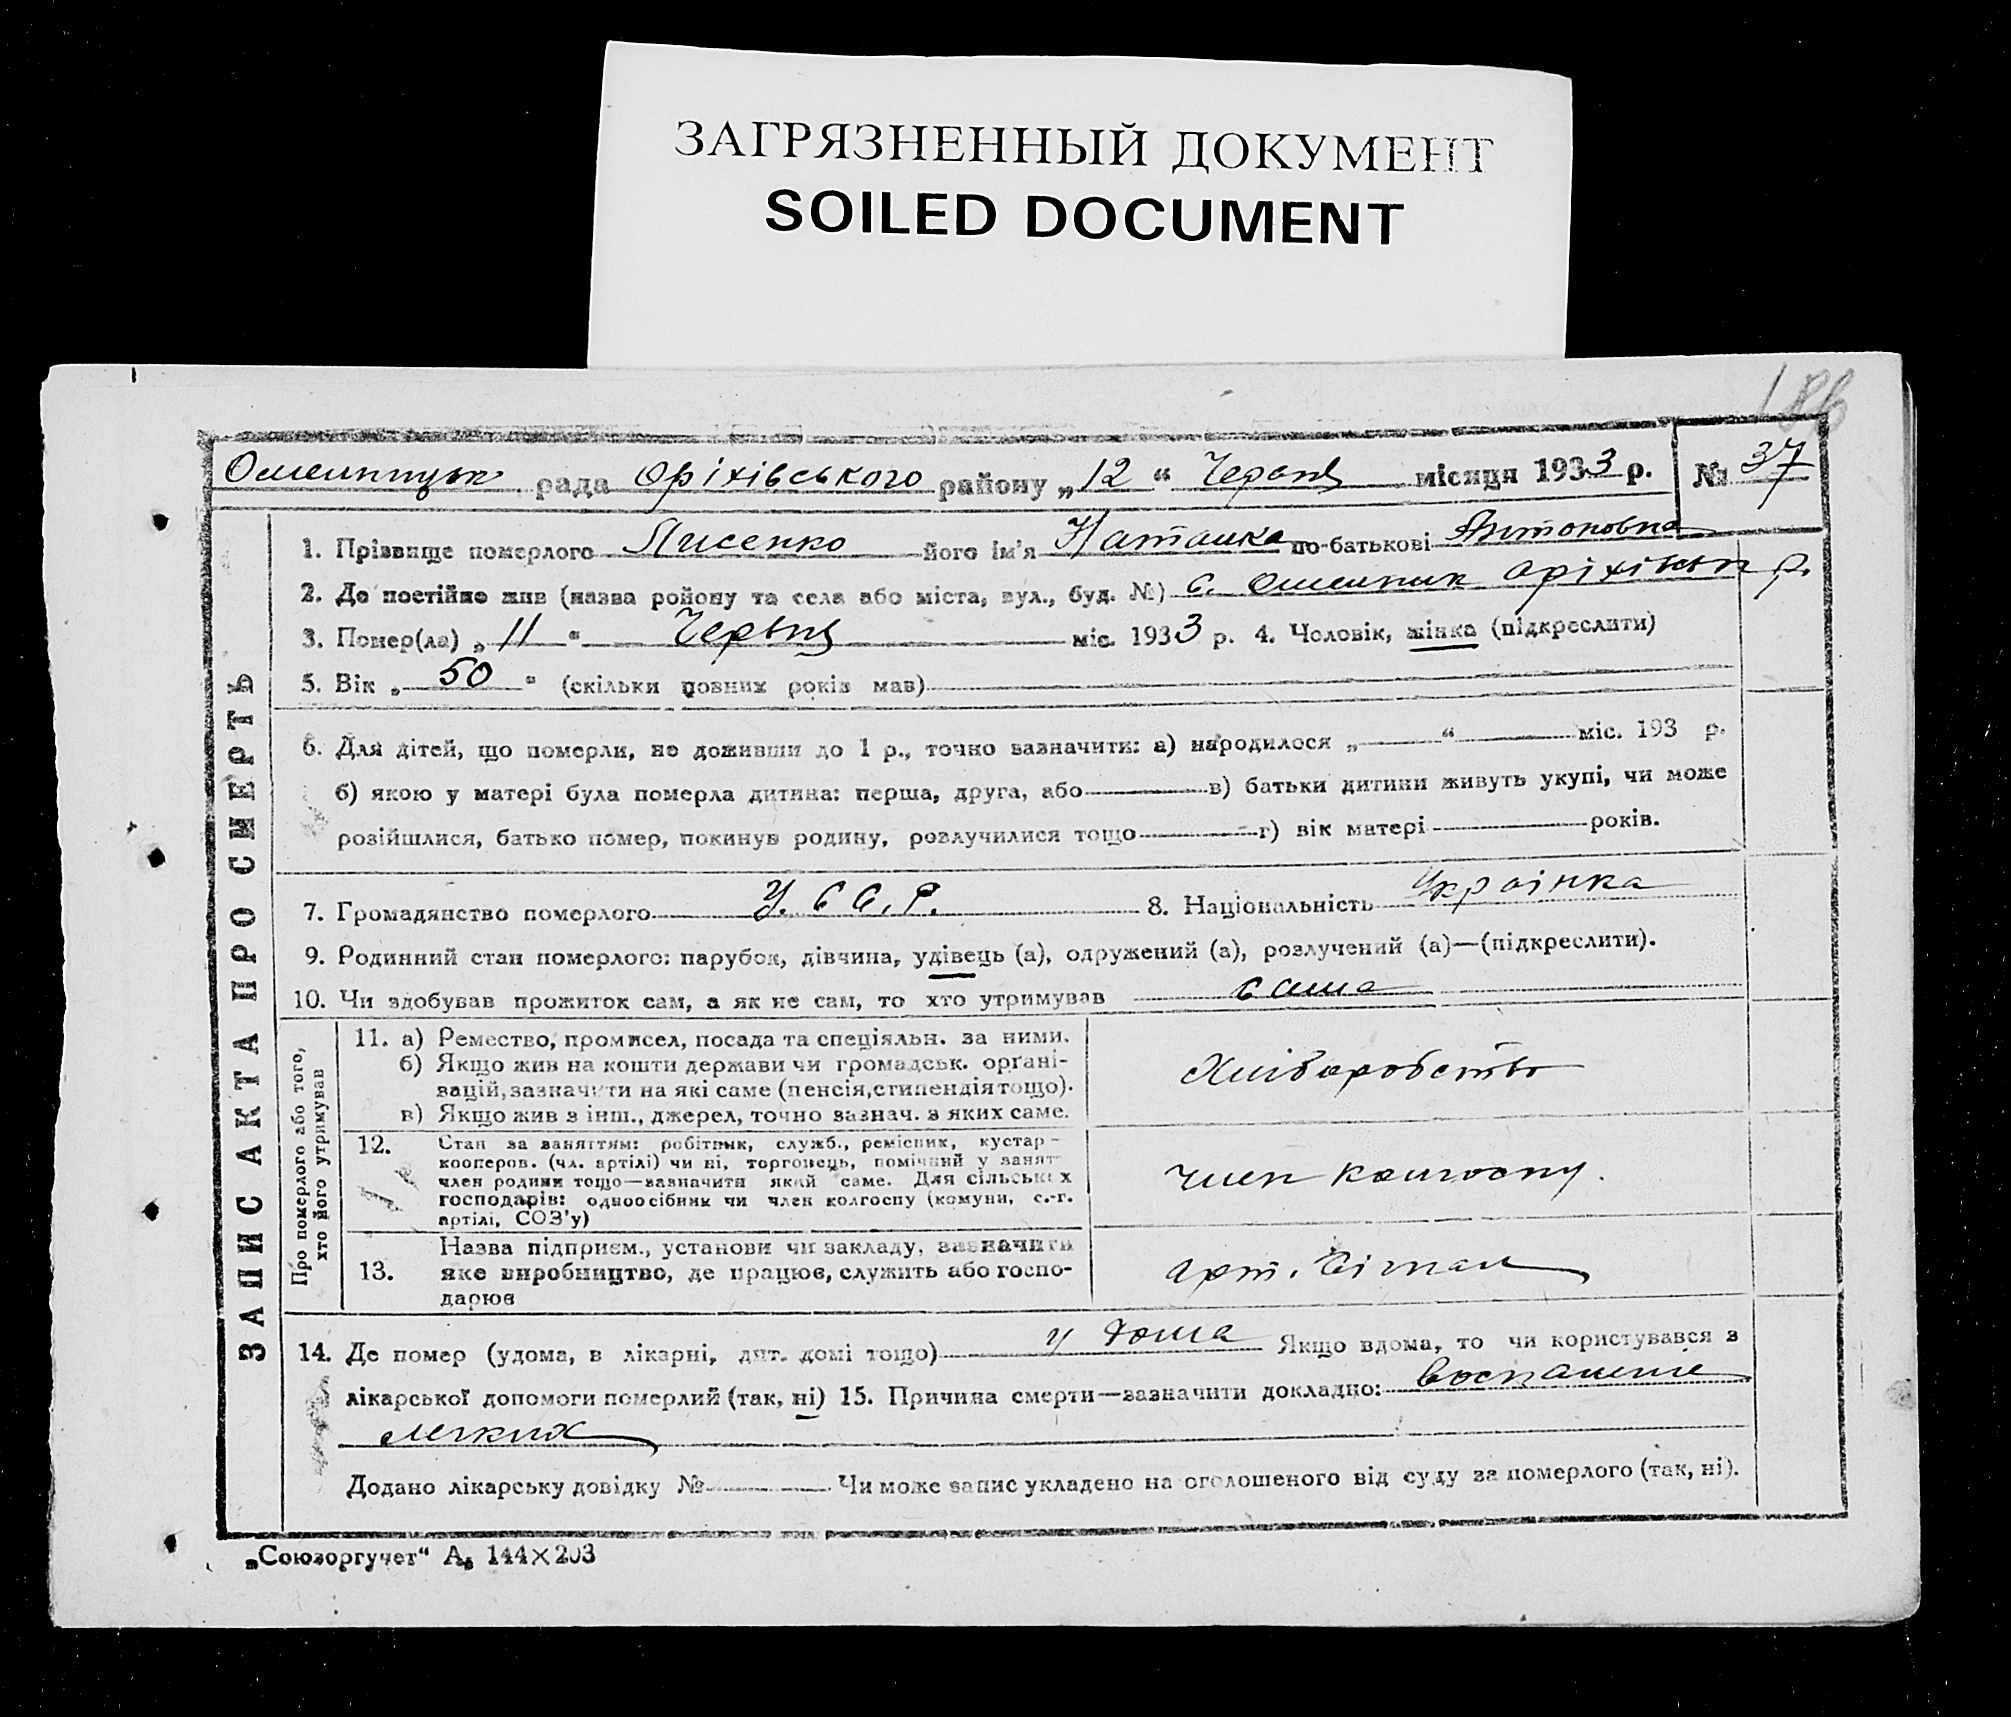 ЗАГРЯЗНЕННЫЙ ДОКУМЕНТ
SOILED DOCUMENT
186
рада Оріхівського району „12“ Червня місяця 1933 р. № 37
ЗАПИС АКТА ПРО СМЕРТЬ
1. Прізвище померлого Лисенко його ім'я Наташка по-батькові Антоновна
2. Де постійно жив (назва ройону та села або міста, вул., буд. №) с. Омельник Оріхівськ р.
3. Помер(ла) „11“ Червня міс. 1933 р. 4. Чоловік, жінка (підкреслити)
5. Вік „50“ (скільки повних років мав)
6. Для дітей, що померли, не доживши до 1 р., точно зазначити: а) народилося „ “ міс. 193 р.
б) якою у матері була померла дитина: перша, друга, або в) батьки дитини живуть укупі, чи може
розійшлися, батько помер, покинув родину, розлучилися тощо г) вік матері років.
7. Громадянство померлого У.С.С.Р. 8. Національність Українка
9. Родинний стан померлого: парубок, дівчина, удівець (а), одружений (а), розлучений (а)—(підкреслити).
10. Чи здобував прожиток сам, а як не сам, то хто утримував сама
Про померлого або того,
хто його утримував
11. а) Ремество, промисел, посада та спеціяльн. за ними.
б) Якщо жив на кошти держави чи громадськ. орґані-
зацій, зазначити на які саме (пенсія, стипендія тощо).
в) Якщо жив з інш., джерел, точно зазнач. з яких саме.
Хліборобство
12. Стан за заняттям: робітник, служб., ремісник, кустар-
кооперов. (чл. артілі) чи ні, торговець, помічний у занят
член родини тощо—зазначити який саме. Для сільських
господарів: одноосібник чи член колгоспу (комуни, с.-г.
артілі, СОЗ'у)
член колгоспу.
13. Назва підприєм., установи чи закладу, зазначити
яке виробництво, де працює, служить або госпо-
дарює
арт.
14. Де помер (удома, в лікарні, дит. домі тощо) у дома Якщо вдома, то чи користувався з
лікарської допомоги померлий (так, ні) 15. Причина смерти—зазначити докладно: воспаленіе
легких
Додано лікарську довідку № Чи може запис укладено на оголошеного від суду за померлого (так, ні).
„Союзоргучет“ А₆ 144×203